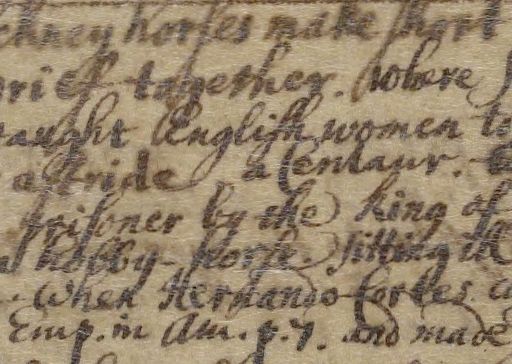 ckney horses make short
brief together. where
taught English women to
astride a Centaur.
prisoner by the King of
hobby horse. sitting
. When Hernando Cortes
Emp. in Am. p. 7. and made